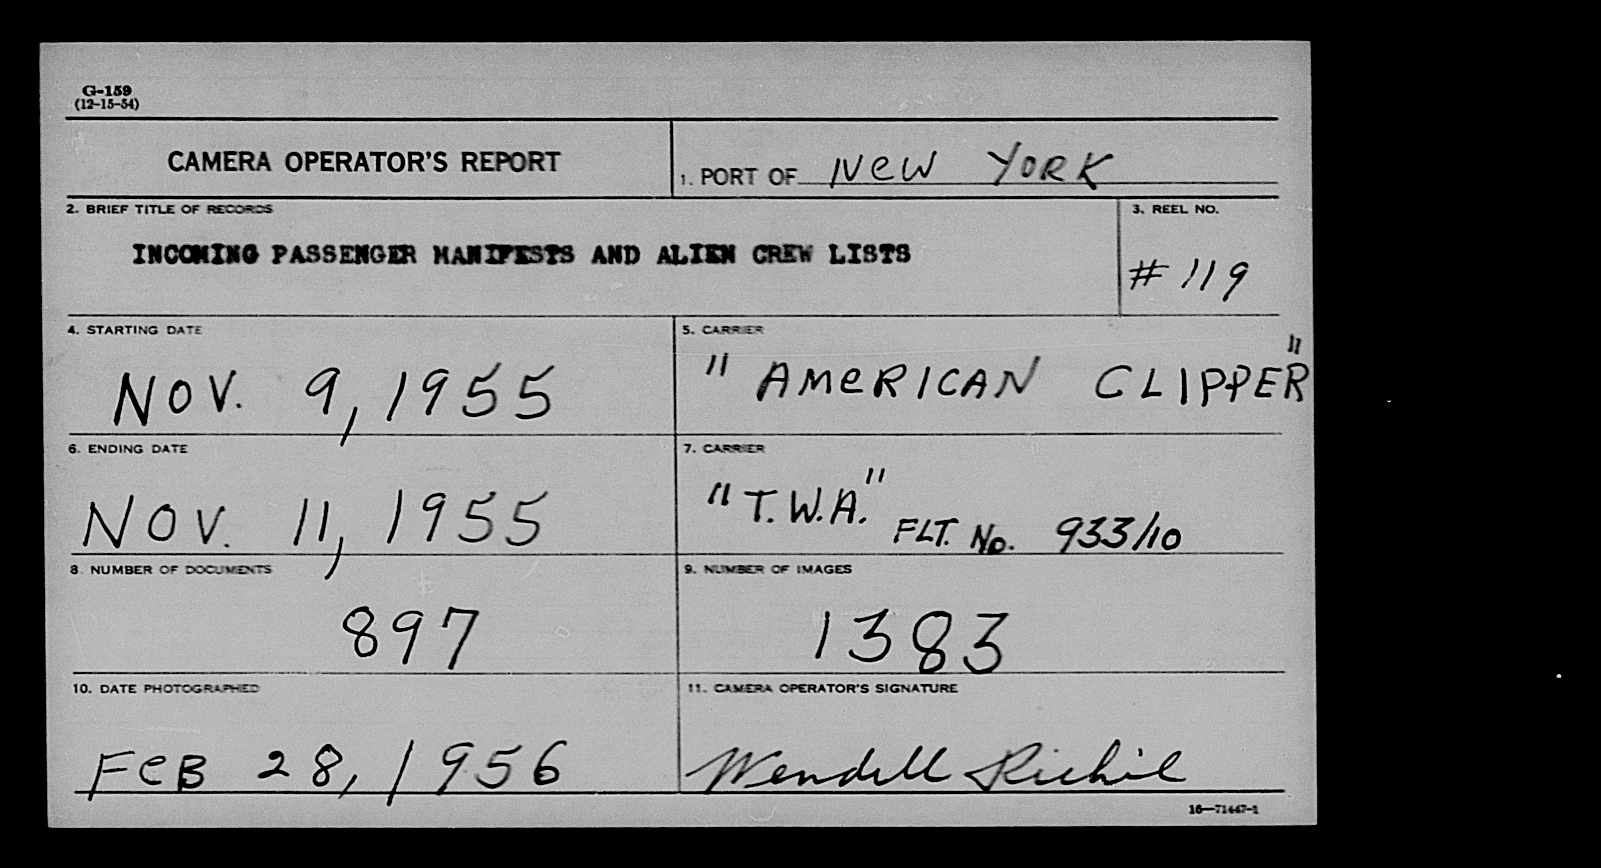 G-159
(12-15-54)
CAMERA OPERATOR'S REPORT
1. PORT OF NEW YORK
2. BRIEF TITLE OF RECORDS
INCOMING PASSENGER MANIFESTS AND ALIEN CREW LISTS
3. REEL NO.
# 119
4. STARTING DATE
NOV. 9, 1955
5. CARRIER
"AMERICAN CLIPPER"
6. ENDING DATE
NOV. 11, 1955
7. CARRIER
"T.W.A." FLT. No. 933/10
8. NUMBER OF DOCUMENTS
897
9. NUMBER OF IMAGES
1383
10. DATE PHOTOGRAPHED
FEB 28, 1956
11. CAMERA OPERATOR'S SIGNATURE
Wendell
16—71447-1